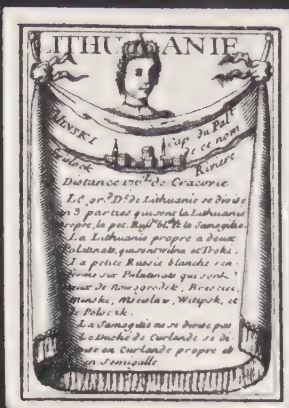 LITHUANIE
MINSKI Cap. du Pal.t
de ce nom
Riviere
Distance 176 L. de Cracovie
Le gr.d D. de Lithuanie se divise
en 3 parties qui sont la Lithuanie
propre, la pet. Russ. bl. et la Samogitie
La Lithuanie propre a deux
Palatinats, qui sont wilna et Troki.
La petite Russie blanche ren-
ferme six Palatinats qui sont
ceux de Novogrodek, Briescici,
Minski, Mscislaw, Witepsk, et
de Poloczk.
La Samogitie ne se divise pas
Le Duché de Curlande se di-
vise en Curlande propre et
en Semigalle